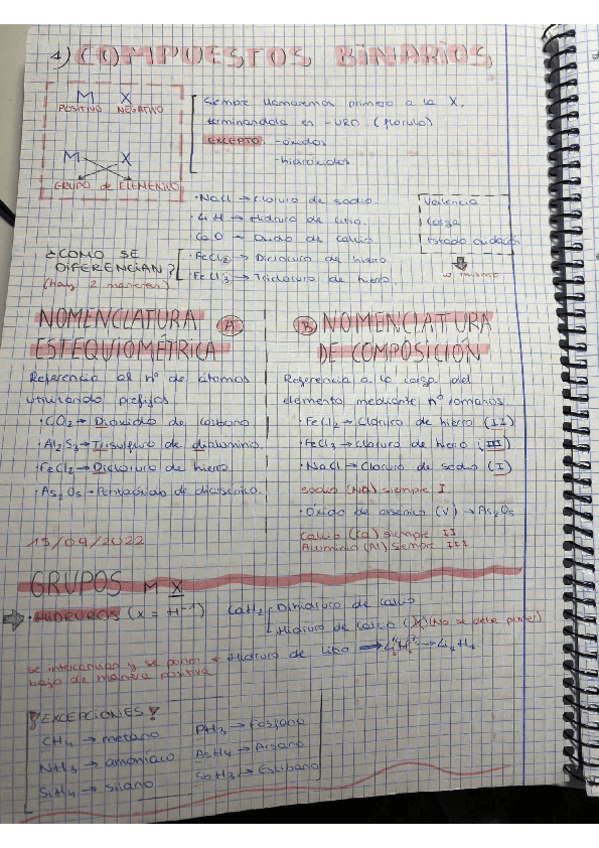 4) COMPUESTOS BINARIOS
M X
POSITIVO NEGATIVO
M X
GRUPO de ELEMENTO
Siempre llamaremos primero a la X,
terminandola en -URO (floruro)
EXCEPTO: -óxidos
-hidróxidos
· NaCl → Cloruro de sodio.
· LiH → Hidruro de litio.
CaO → Oxido de calcio
Valencia
Carga
Estado oxidación
lo mismo
¿COMO SE
DIFERENCIAN?
(Hay 2 maneras)
· FeCl2 → Dicloruro de hierro
· FeCl3 → Tricloruro de hierro.
NOMENCLATURA A
ESTEQUIOMÉTRICA
Referencia al nº de átomos
utilizando prefijos
· CO2 → Dióxido de carbono
· Al2S3 → Trisulfuro de dialuminio.
· FeCl2 → Dicloruro de hierro
· As2O5 → Pentaóxido de diarsénico.
15/09/2022
B NOMENCLATURA
DE COMPOSICIÓN
Referencia a la carga del
elemento mediante nº romanos.
· FeCl2 → Cloruro de hierro (II)
· FeCl3 → Cloruro de hierro (III)
· NaCl → Cloruro de sodio (I)
sodio (Na) siempre I
· Oxido de arsenico (V) → As2O5
Calcio (Ca) siempre II
Aluminio (Al) siempre III
GRUPOS M X
· HIDRUROS (X = H-1) CaH2 Dihidruro de calcio
Hidruro de calcio (II) (No se debe poner)
se intercambian y se ponen
debajo de manera positiva
Hidruro de litio
¡EXCEPCIONES!
CH4 → metano
NH3 → amoniaco
SiH4 → silano
PH3 → Fosfano
AsH4 → Arsano
SbH3 → Estibano